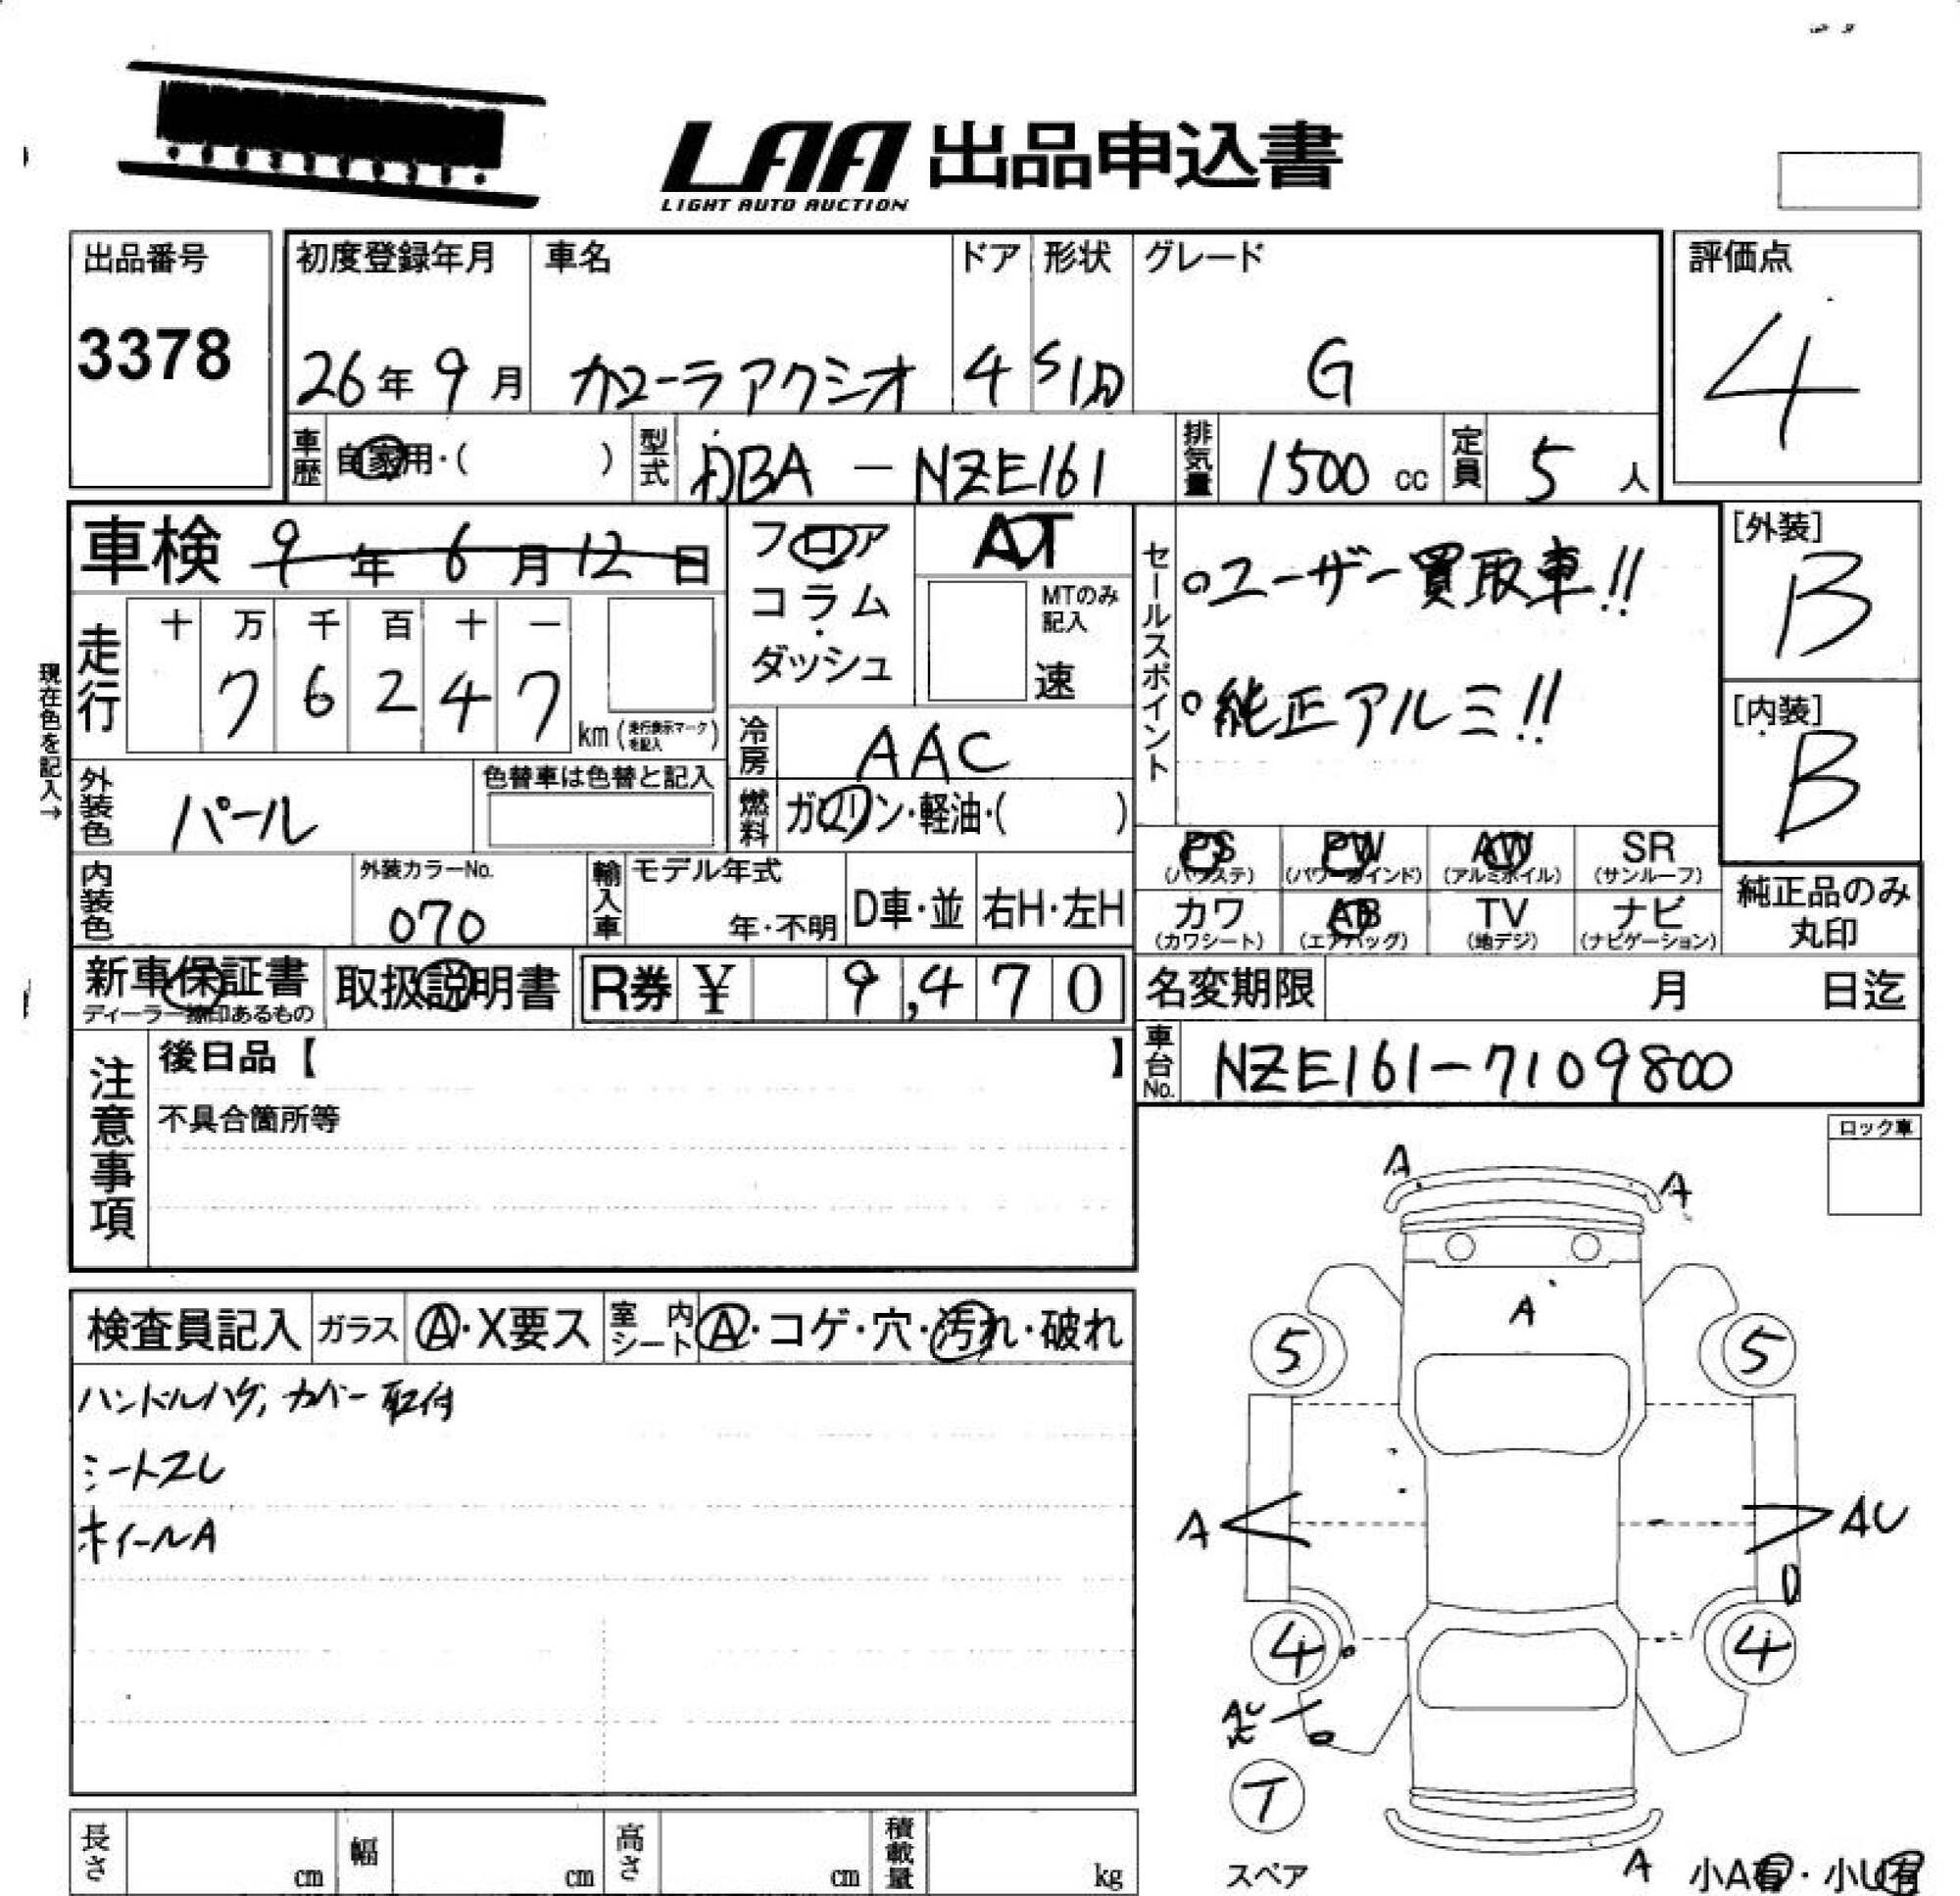 LAA 出品申込書
LIGHT AUTO AUCTION
出品番号
3378
初度登録年月
26年9月
車名
カローラアクシオ
ドア
4
形状
グレード
G
評価点
4
車歴
自家用・( )
型式
DBA - NZE161
排気量
1500 cc
定員
5人
車検 9年6月12日
フロア
コラム
・
ダッシュ
AT
MTのみ記入
速
セールスポイント
○ユーザー買取車!!
○純正アルミ!!
[外装]
B
[内装]
B
現在色を記入→
走行
十 万 千 百 十 一
7 6 2 4 7
km (走行表示マークを記入)
冷房
AAC
外装色
パール
色替車は色替と記入
燃料
ガソリン・軽油・( )
PS (パワステ)
PW (パワーウインド)
AW (アルミホイル)
SR (サンルーフ)
カワ (カワシート)
AB (エアバッグ)
TV (地デジ)
ナビ (ナビゲーション)
純正品のみ
丸印
内装色
外装カラーNo.
070
輸入車
モデル年式
年・不明
D車・並
右H・左H
新車保証書
ディーラー捺印あるもの
取扱説明書
R券 ¥ 9,470
名変期限
月 日迄
車台No.
NZE161-7109800
注意事項
後日品【 】
不具合箇所等
ロック車
検査員記入
ガラス
A・X要ス
室内シート
A・コゲ・穴・汚れ・破れ
ハンドルハゲ, カバー取付
シートスレ
ホイールA
A
A
A
5
5
A
AU
D
4
4
AU
T
スペア
A
小A有・小U有
長さ cm
幅 cm
高さ cm
積載量 kg